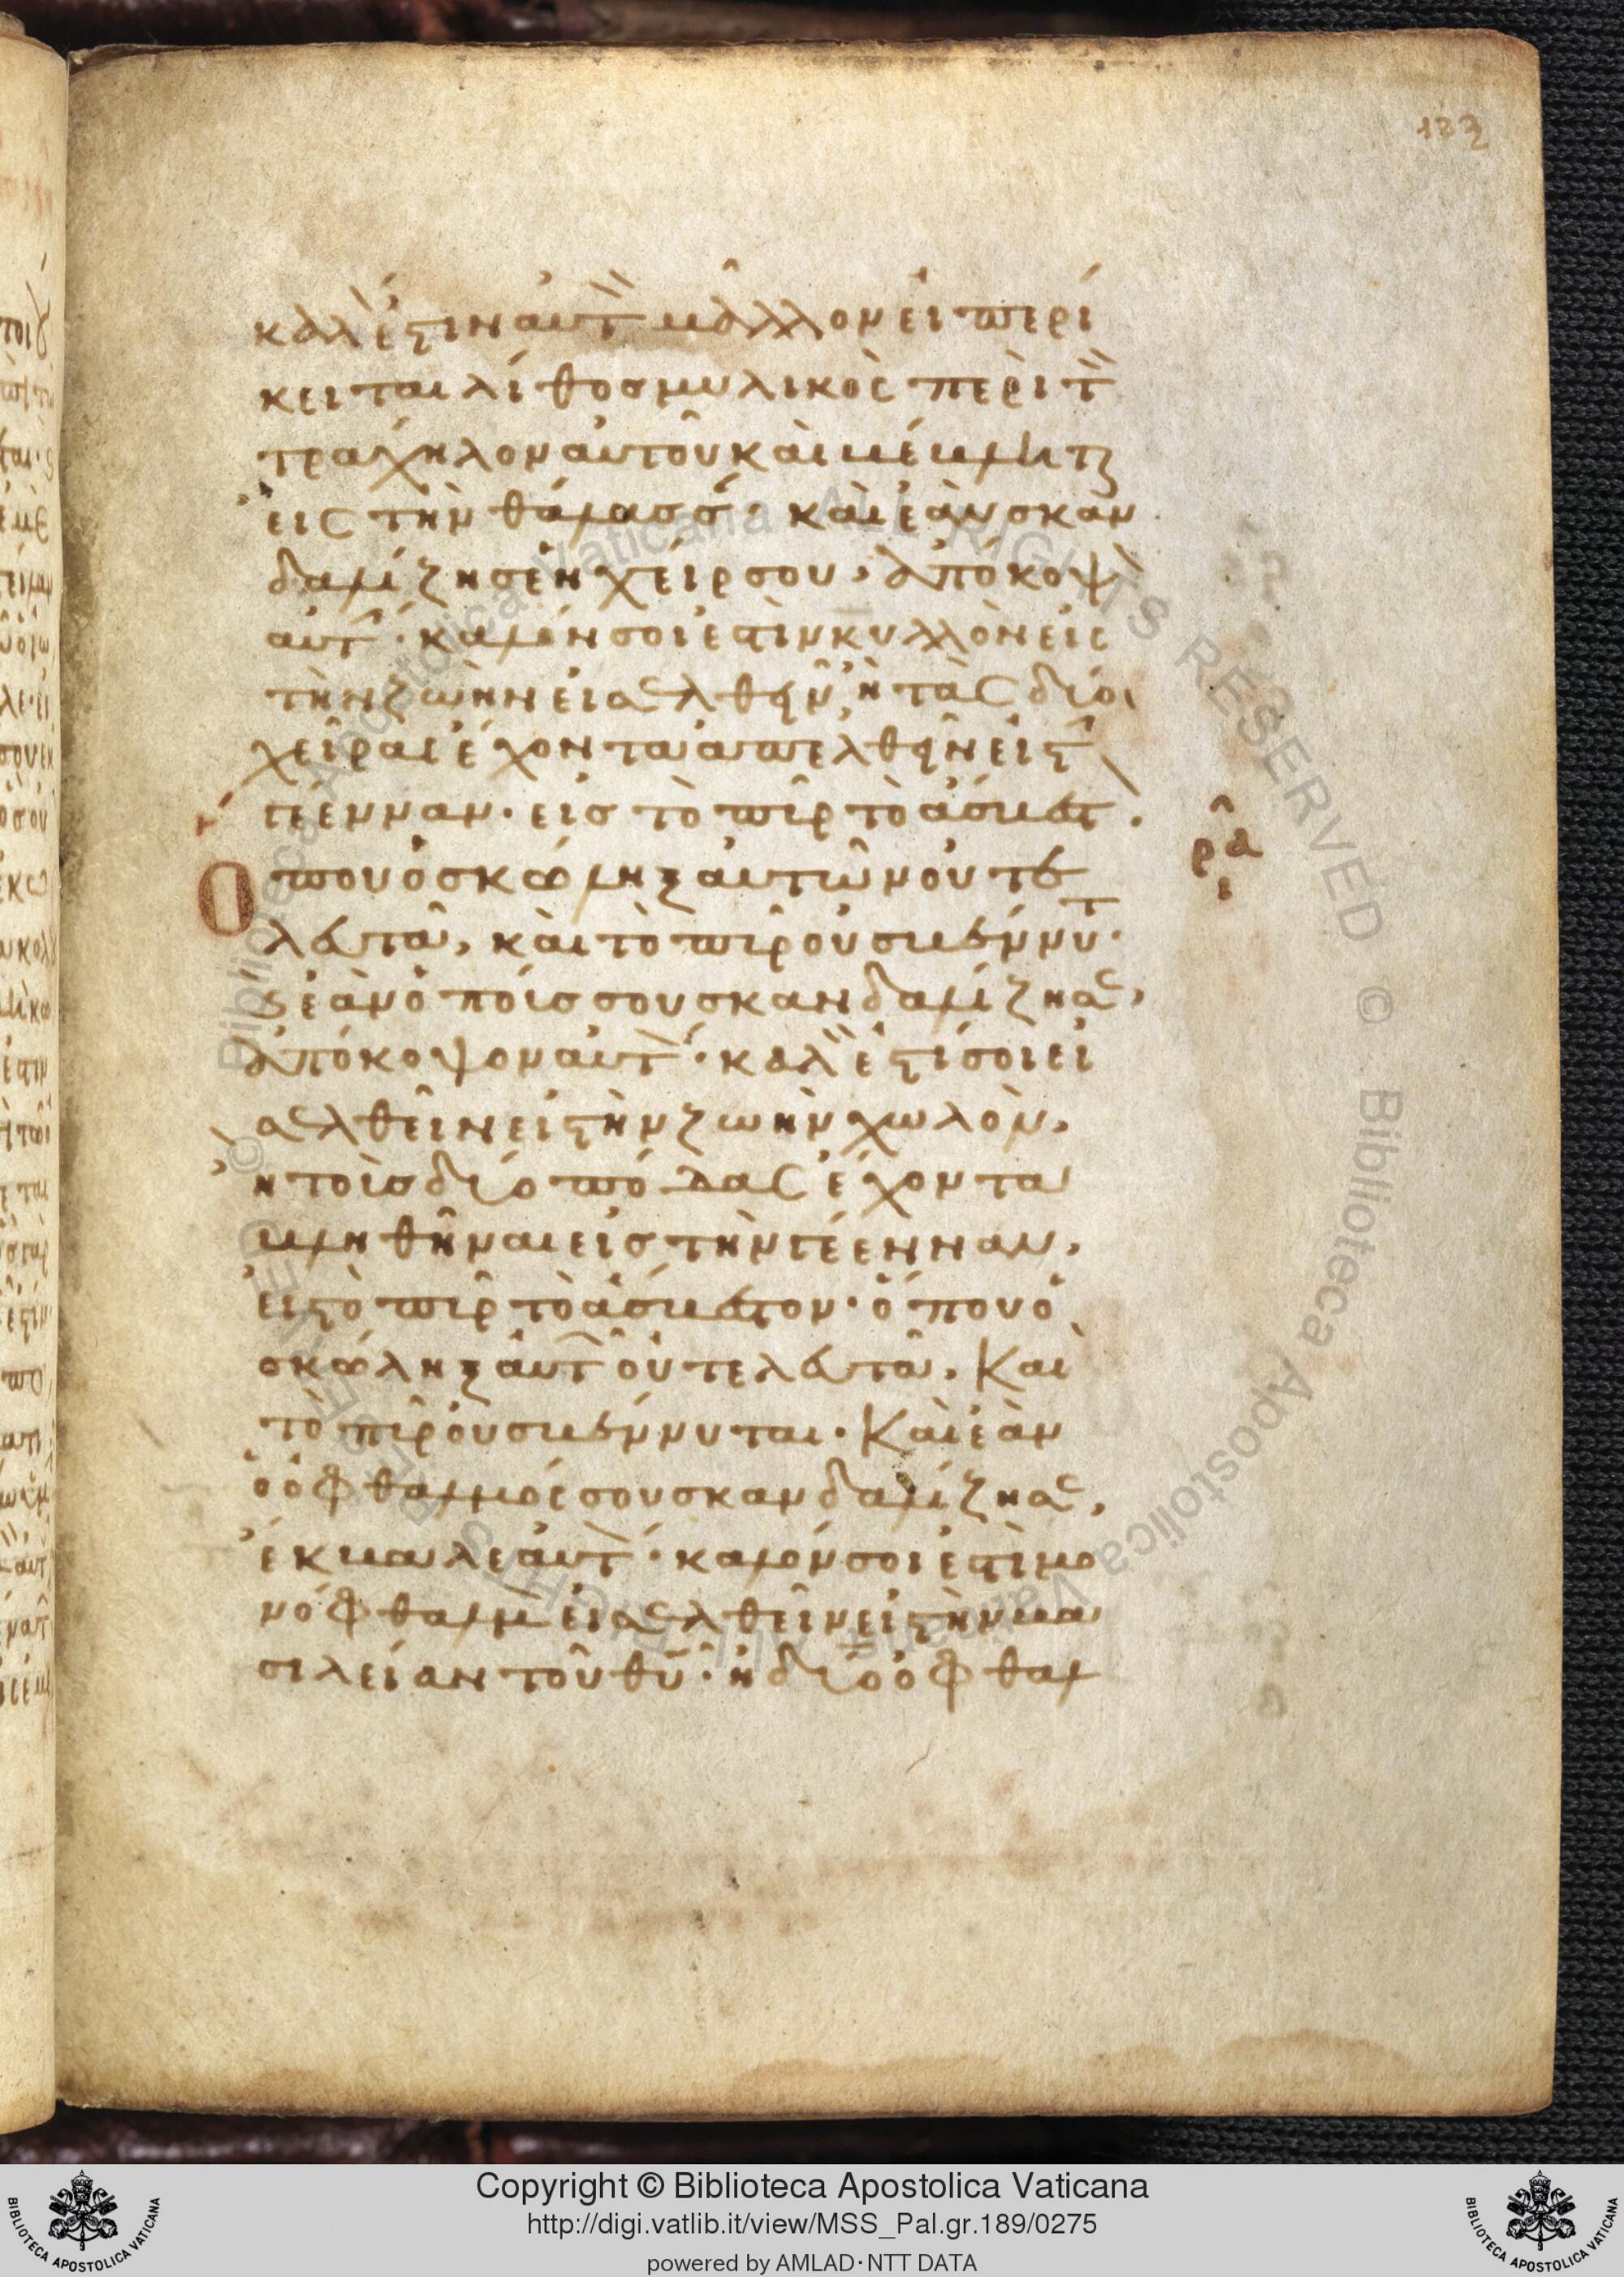 133
καλὸν ἐστιν αὐτῶ μᾶλλον εἰ περί
κειται λίθος μυλικὸς περὶ τὸν
τράχηλον αὐτοῦ καὶ βέβληται
εἰς τὴν θάλασσαν· καὶ ἐὰν σκαν
δαλίζη σε ἡ χείρ σου, ἀπόκοψον
αὐτήν· καλόν σοι ἐστὶν κυλλὸν εἰς
τὴν ζωὴν εἰσελθεῖν, ἢ τὰς δύο
χεῖρας ἔχοντα ἀπελθεῖν εἰς τὴν
γέενναν· εἰς τὸ πῦρ τὸ ἄσβεστον.
Ὅπου ὁ σκώληξ αὐτῶν οὐ τε
λευτᾶ, καὶ τὸ πῦρ οὐ σβέννυται·
ρα
καὶ ἐὰν ὁ ποῦς σου σκανδαλίζη σε,
ἀπόκοψον αὐτόν· καλόν ἐστί σοι εἰ
σελθεῖν εἰς τὴν ζωὴν χωλὸν,
ἢ τοὺς δύο πόδας ἔχοντα
βληθῆναι εἰς τὴν γέενναν,
εἰς τὸ πῦρ τὸ ἄσβεστον· ὅπου ὁ
σκώληξ αὐτῶν οὐ τελευτᾶ, Καὶ
τὸ πῦρ οὐ σβέννυται· Καὶ ἐὰν
ὁ ὀφθαλμός σου σκανδαλίζη σε,
ἔκβαλε αὐτόν· καλόν σοι ἐστὶ μο
νόφθαλμον εἰσελθεῖν εἰς τὴν βα
σιλείαν τοῦ θυ· ἢ δύο ὀφθαλ
Copyright © Biblioteca Apostolica Vaticana
http://digi.vatlib.it/view/MSS_Pal.gr.189/0275
powered by AMLAD·NTT DATA
BIBLIOTECA APOSTOLICA VATICANA
BIBLIOTECA APOSTOLICA VATICANA
© Biblioteca Apostolica Vaticana ALL RIGHTS RESERVED © Biblioteca Apostolica Vaticana ALL RIGHTS RESERVED